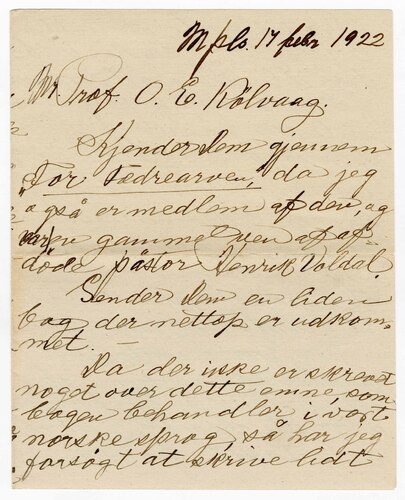 Mpls. 17 febr 1922
Mr. Prof. O. E. Rölvaag.
Kjender Dem gjennem
"For Fædrearven," da jeg
også er medlem af den, og
var en gammel ven af af-
døde pastor Henrik Voldal.
Sender Dem en liden
bog der nettop er udkom-
met. —
Da der ikke er skrevet
noget over dette emne, som
bogen behandler i vort
norske sprog, så har jeg
forsøgt at skrive lidt